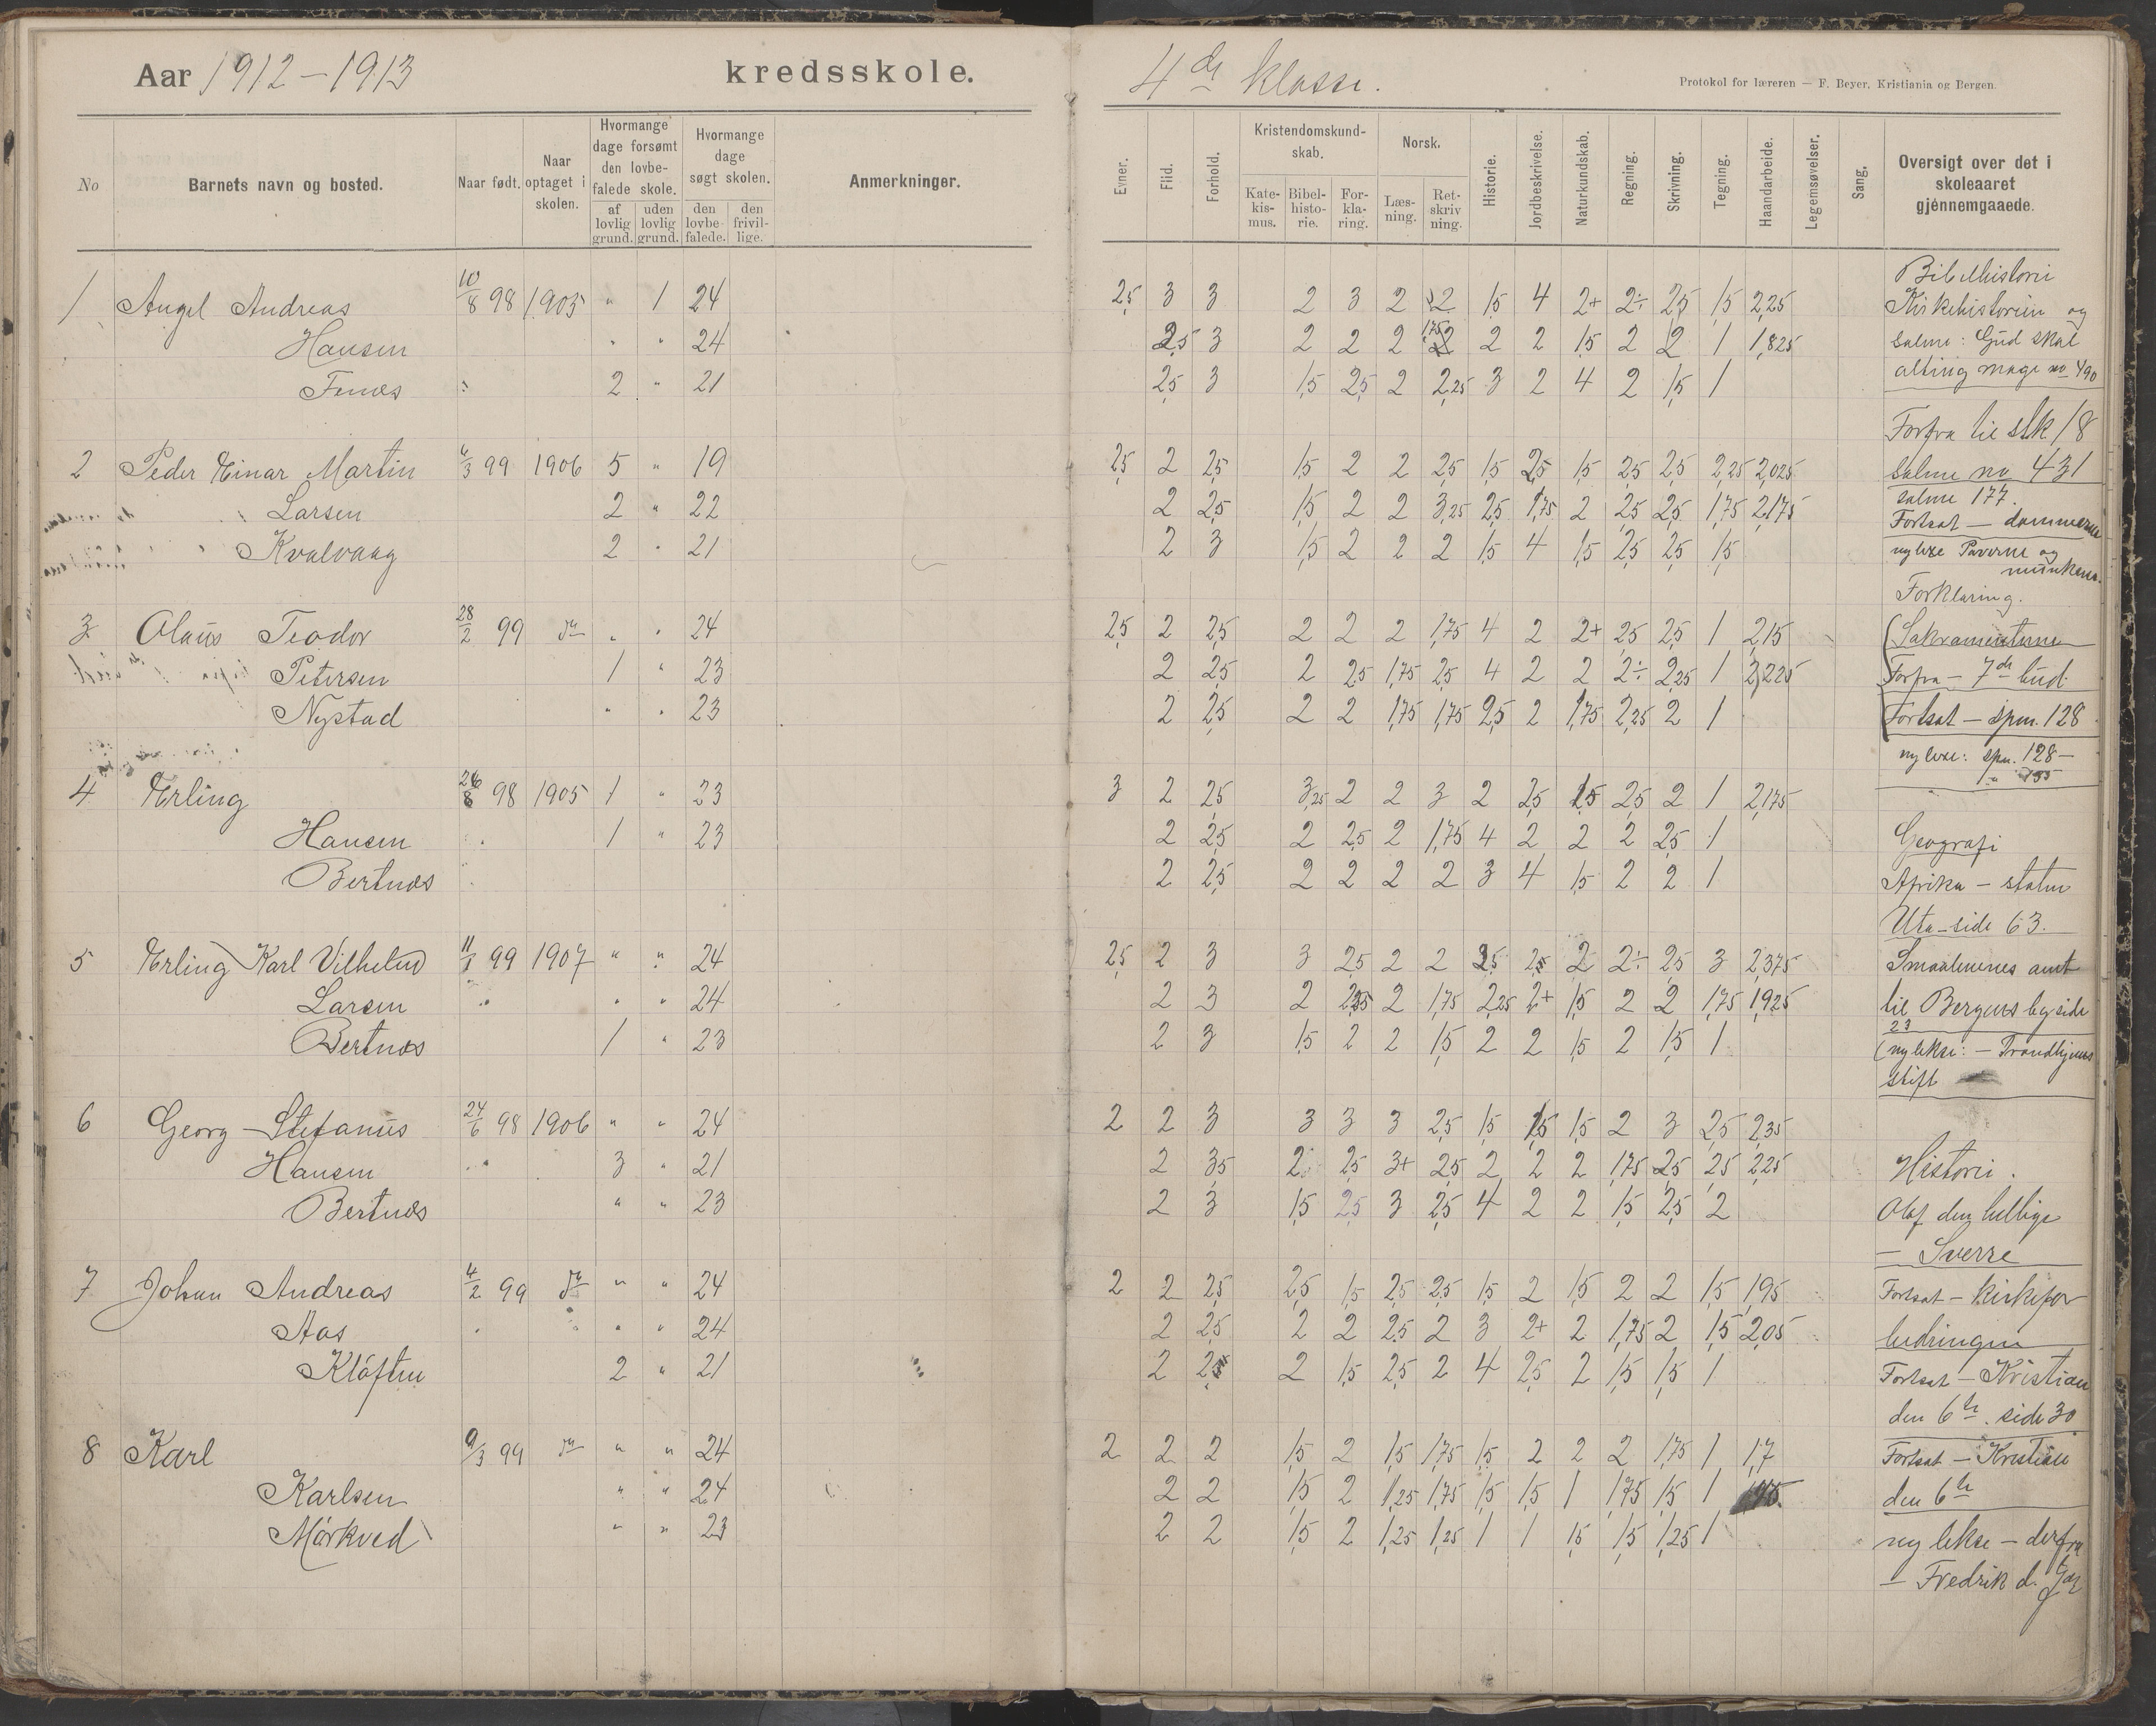 Aar 1912-1913 kredsskole. 4de klasse. Protokol for læreren — F. Beyer. Kristiania og Bergen.
No
Barnets navn og bosted.
Naar født.
Naar optaget i skolen.
Hvormange dage forsømt den lovbefalede skole.
af lovlig grund.
uden lovlig grund.
Hvormange dage søgt skolen.
den lovbefalede.
den frivillige.
Anmerkninger.
Evner.
Flid.
Forhold.
Kristendomskundskab.
Katekismus.
Bibelhistorie.
Forklaring.
Norsk.
Læsning.
Retskrivning.
Historie.
Jordbeskrivelse.
Naturkundskab.
Regning.
Skrivning.
Tegning.
Haandarbeide.
Legemsøvelser.
Sang.
Oversigt over det i skoleaaret gjénnemgaaede.
1 Angel Andreas 10/8 98 1905 " 1 24 2,5 3 3 2 3 2 2 1,5 4 2+ 2÷ 2,5 1,5 2,25
Hansen " " 24 2,5 3 2 2 2 1,75 2 2 1,5 2 2 1 1,825
Fenes 2 " 21 2,5 3 1,5 2,5 2 2,25 3 2 4 2 1,5 1
2 Peder Einar Martin 6/3 99 1906 5 " 19 2,5 2 2,5 1,5 2 2 2,5 1,5 2,5 1,5 2,5 2,5 2,25 2,025
Larsen 2 " 22 2 2,5 1,5 2 2 3,25 2,5 1,75 2 2,5 2,5 1,75 2,175
Kvalvaag 2 " 21 2 3 1,5 2 2 2 1,5 4 1,5 2,5 2,5 1,5
3 Olaus Teodor 28/2 99 do " " 24 2,5 2 2,5 2 2 2 1,75 4 2 2+ 2,5 2,5 1 2,15
Petersen 1 " 23 2 2,5 2 2,5 1,75 2,5 4 2 2 2÷ 2,25 1 2,225
Nystad " " 23 2 2,5 2 2 1,75 1,75 2,5 2 1,75 2,25 2 1
4 Erling 26/8 98 1905 1 " 23 3 2 2,5 3,25 2 2 3 2 2,5 1,5 2,5 2 1 2,175
Hansen 1 " 23 2 2,5 2 2,5 2 1,75 4 2 2 2 2,5 1
Bertnes 2 2,5 2 2 2 2 3 4 1,5 2 2 1
5 Erling Karl Vilhelm 99 1907 " " 24 2,5 2 3 3 2,5 2 2 2,5 2,5 2 2÷ 2,5 3 2,375
Larsen " " 24 2 3 2 2 1,75 2,25 2+ 1,5 2 2 1,75 1,925
Bertnes 1 " 23 2 3 1,5 2 2 1,5 2 2 1,5 2 1,5 1
6 Georg Stefanus 24/6 98 1906 " " 24 2 2 3 3 3 3 2,5 1,5 1,5 1,5 2 3 2,5 2,35
Hansen 3 " 21 2 3,5 2 2,5 3+ 2,5 2 2 2 1,75 2,5 2,5 2,25
Bertnes " " 23 2 3 1,5 2,5 3 2,5 4 2 2 1,5 2,5 2
7 Johan Andreas 4/2 99 do " " 24 2 2 2,5 2,5 1,5 2,5 2,5 1,5 2 1,5 2 2 1,5 1,95
Aas " " 24 2 2,5 2 2 2,5 2 3 2+ 2 1,75 2 1,5 2,05
Kløften 2 " 21 2 2,5 2 1,5 2,5 2 4 2,5 2 1,5 1,5 1
8 Karl 9/3 99 do " " 24 2 2 2 1,5 2 1,5 1,75 1,5 2 2 2 1,75 1 1,7
Karlsen " " 24 2 2 1,5 2 1,25 1,75 1,5 1,5 1 1,75 1,5 1
Mørkved " " 23 2 2 1,5 2 1,25 1,25 1 1 1,5 1,5 1,25 1
Bibelhistorie
Kirkehistorien og
Salme: Gud skal
alting mage no 490
Forfra til stk 18
Salme no 431
Salme 177.
Fortsat — dommerne
ny lexe Paverne og
munkene.
Forklaring.
Sakramenterne
Forfra — 7de bud.
Fortsat — spm. 128
ny lexe: spm. 128 —
Geografi
Afrika — staten
Uta — side 63.
Smaalenenes amt
til Bergens by side
23
(ny lekse: — Trondhjems
stift
Historie.
Olaf den hellige
— Sverre
Fortsat — kirkefor
bedringen
Fortsat — Kristian
den 6te. side 30
Fortsat — Kristian
den 6te
ny lekse — derfra
— Fredrik d.